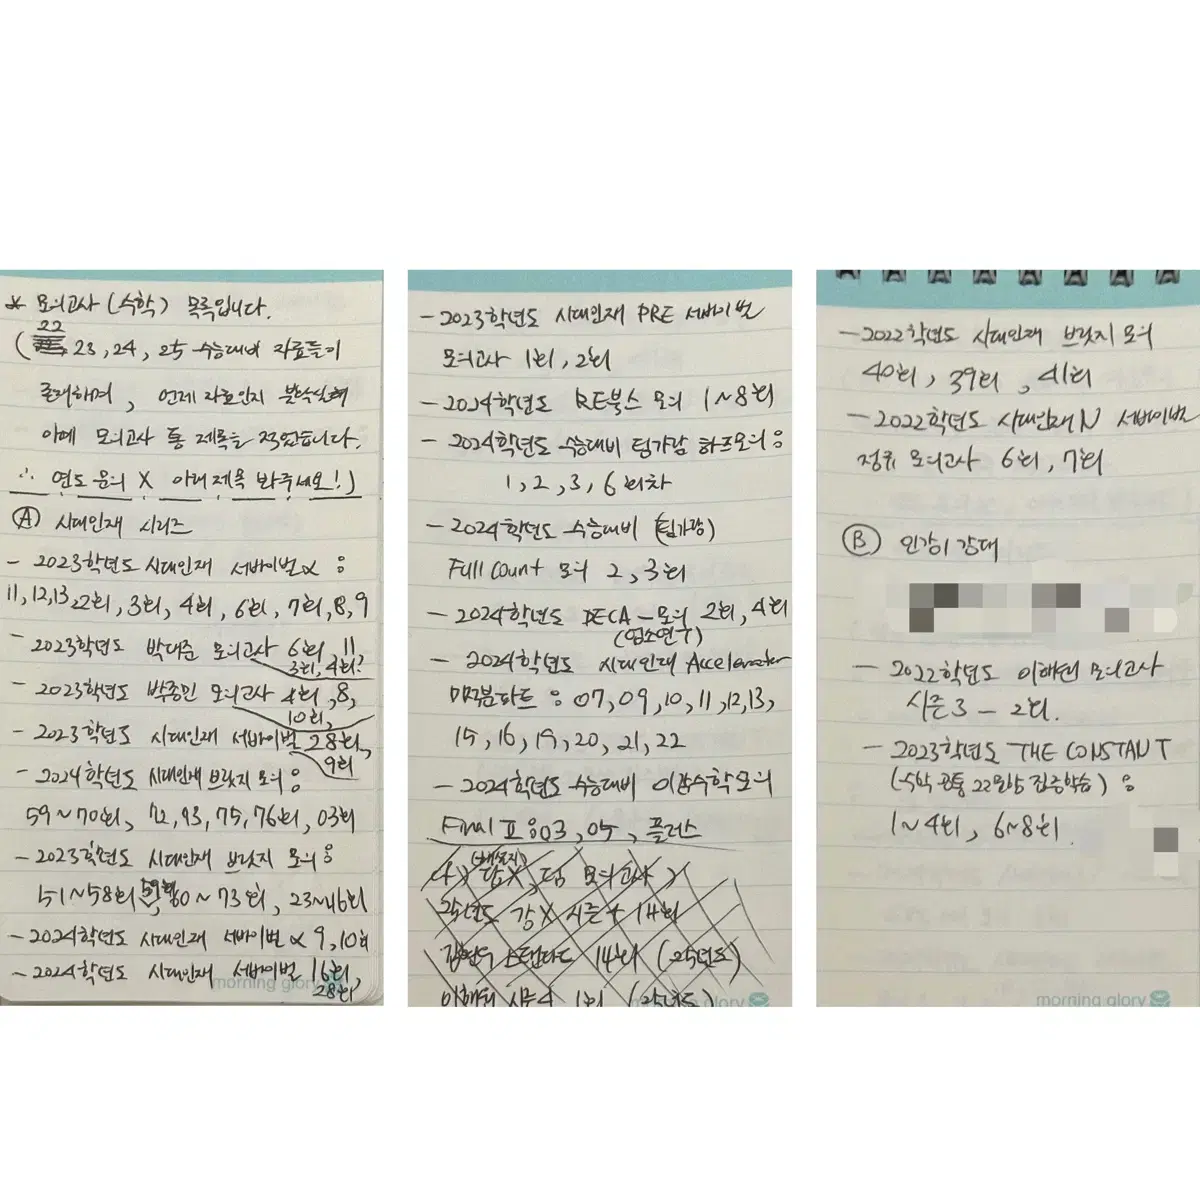 * 모의고사 (수학) 목록입니다.
22
( 23, 24, 25 수능대비 자료들이
존재하며, 언제 자료인지
아예 모의고사 통 제목을 적었습니다.
∴ 연도 문의 X 아래 제목 봐주세요!)
Ⓐ 시대인재 시리즈
- 2023학년도 시대인재 서바이벌α :
11, 12, 13, 2회, 3회, 4회, 6회, 7회, 8, 9
- 2023학년도 박대준 모의고사 6회, 11
3회, 4회?
- 2023학년도 박종민 모의고사 4회, 8,
10회,
- 2023학년도 시대인재 서바이벌 28회,
9회
- 2024학년도 시대인재 브릿지 모의 :
59~70회, 72, 93, 75, 76회, 03회
- 2023학년도 시대인재 브릿지 모의 :
51~58회, 60~73회, 23~46회
- 2024학년도 시대인재 서바이벌α 9, 10회
- 2024학년도 시대인재 서바이벌 16회,
28회
morning glory
- 2023학년도 시대인재 PRE 서바이벌
모의고사 1회, 2회
- 2024학년도 RE북스 모의 1~8회
- 2024학년도 수능대비 팀가람 하프모의 :
1, 2, 3, 6회차
- 2024학년도 수능대비 (팀가람)
Full count 모의 2, 3회
- 2024학년도 DECA - 모의 2회, 4회
(염소연구)
- 2024학년도 시대인재 Accelerator
미적분파트 : 07, 09, 10, 11, 12, 13,
15, 16, 19, 20, 21, 22
- 2024학년도 수능대비 이감수학모의
Final 표 : 03, 05, 플러스
모의고사)
25년도 강X 시즌 14회
김현우 스탠다드 14회 (25년도)
이해원 시즌4 1회 (25년도)
morning glory
- 2022학년도 시대인재 브릿지 모의
40회, 39회, 41회
- 2022학년도 시대인재N 서바이벌
정규 모의고사 6회, 7회
Ⓑ 인강 / 강대
- 2022학년도 이해원 모의고사
시즌3 - 2회.
- 2023학년도 THE CONSTANT
(수학 공통 22문항 집중학습) :
1~4회, 6~8회.
morning glory